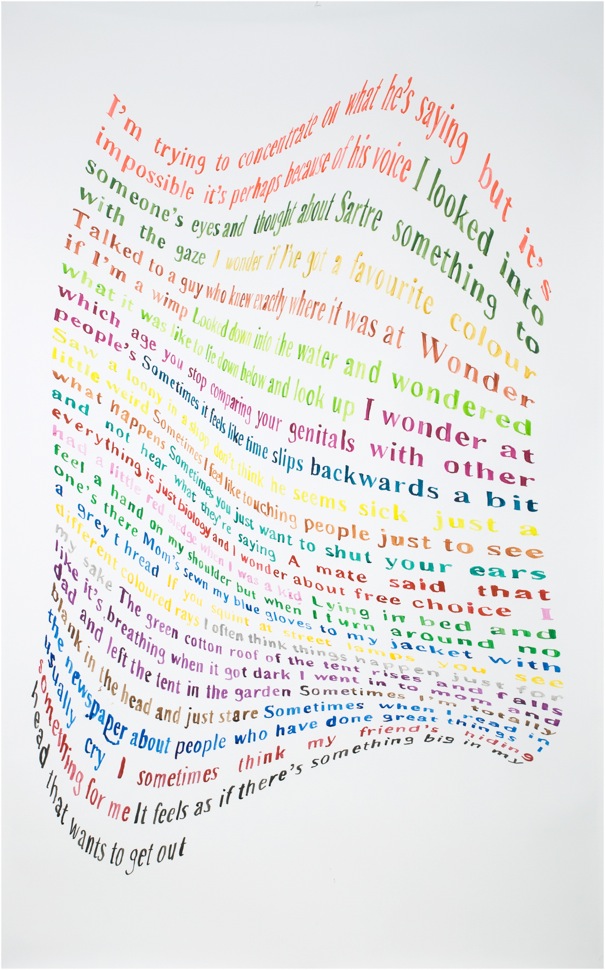 I'm trying to concentrate on what he's saying but it's
impossible it's perhaps because of his voice I looked into
someone's eyes and thought about Sartre something to
with the gaze I wonder if I've got a favourite colour
Talked to a guy who knew exactly where it was at Wonder
if I'm a wimp Looked down into the water and wondered
what it was like to lie down below and look up I wonder at
which age you stop comparing your genitals with other
people's Sometimes it feels like time slips backwards a bit
Saw a loony in a shop don't think he seems sick just a
little weird Sometimes I feel like touching people just to see
what happens Sometimes you just want to shut your ears
and not hear what they're saying A mate said that
everything is just biology and I wonder about free choice I
had a little red sledge when I was a kid Lying in bed and
feel a hand on my shoulder but when I turn around no
one's there Mom's sewn my blue gloves to my jacket with
a grey thread If you squint at street lamps you see
different coloured rays I often think things happen just for
my sake The green cotton roof of the tent rises and falls
like it's breathing when it got dark I went in to mom and
dad and left the tent in the garden Sometimes I'm totally
blank in the head and just stare Sometimes when I read in
the newspaper about people who have done great things I
usually cry I sometimes think my friend's hiding
something for me It feels as if there's something big in my
head that wants to get out